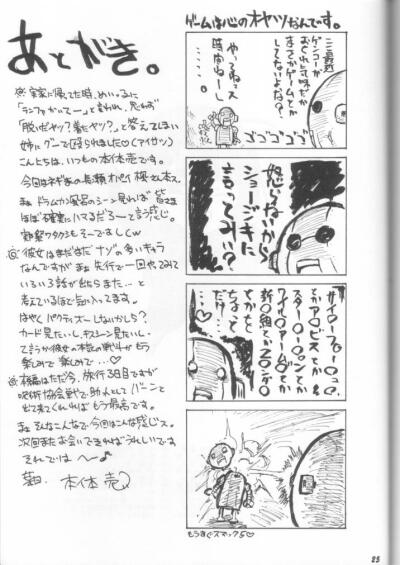 あとがき。
実家に帰ってた時、めいっ子に
「ランファかいてー」と言われ、思わず
「脱いだヤツ？着たヤツ？」と答えてしまい
姉にグーで殴られました（アイサツ）
こんちは、いつもの本体売です。
今回はネギま の
まぁ ドラムカン風呂のシーン見れば 皆さま
ほぼ確実にハマるだろーて言う感じ。
彼女はまだまだ ナゾの多いキャラ
なんですが まぁ 先行で一回やってみて
いろいろ話が出たらまた…と
考えているほど気に入ってます。
はやく パクティオーしないかしら？
カード見たいし、キスシーン見たいし、
て言うか彼女の本気の戦斗がもう
楽しみで 楽しみで…♡
本編はただ今、旅行3日目ですが
呪術協会戦で助人として バーンと
出て来てくれれば もう最高です。
まぁ そんなこんなで 今回はこんな感じス。
次回また お会いできればうれしいです
それでは へ〜♪
本体売
ゲームは心のオヤツなんです。
ここ最近
ゲンコーが
おくれ気味だか
まさかゲームとか
してないよな？
やってねっス
時間ねーし
……
ゴゴゴゴゴ
怒らないから
ショージキに
言ってみぃ？
サイ〇ーフォー〇っ？
とかア〇ビスとか
スター〇ー〇ンとか
ワイル〇アー〇ズとか
新〇組とかZ〇ンダ〇
とかをと
ちょっと
だけ…
もうすぐスマック5♡
25